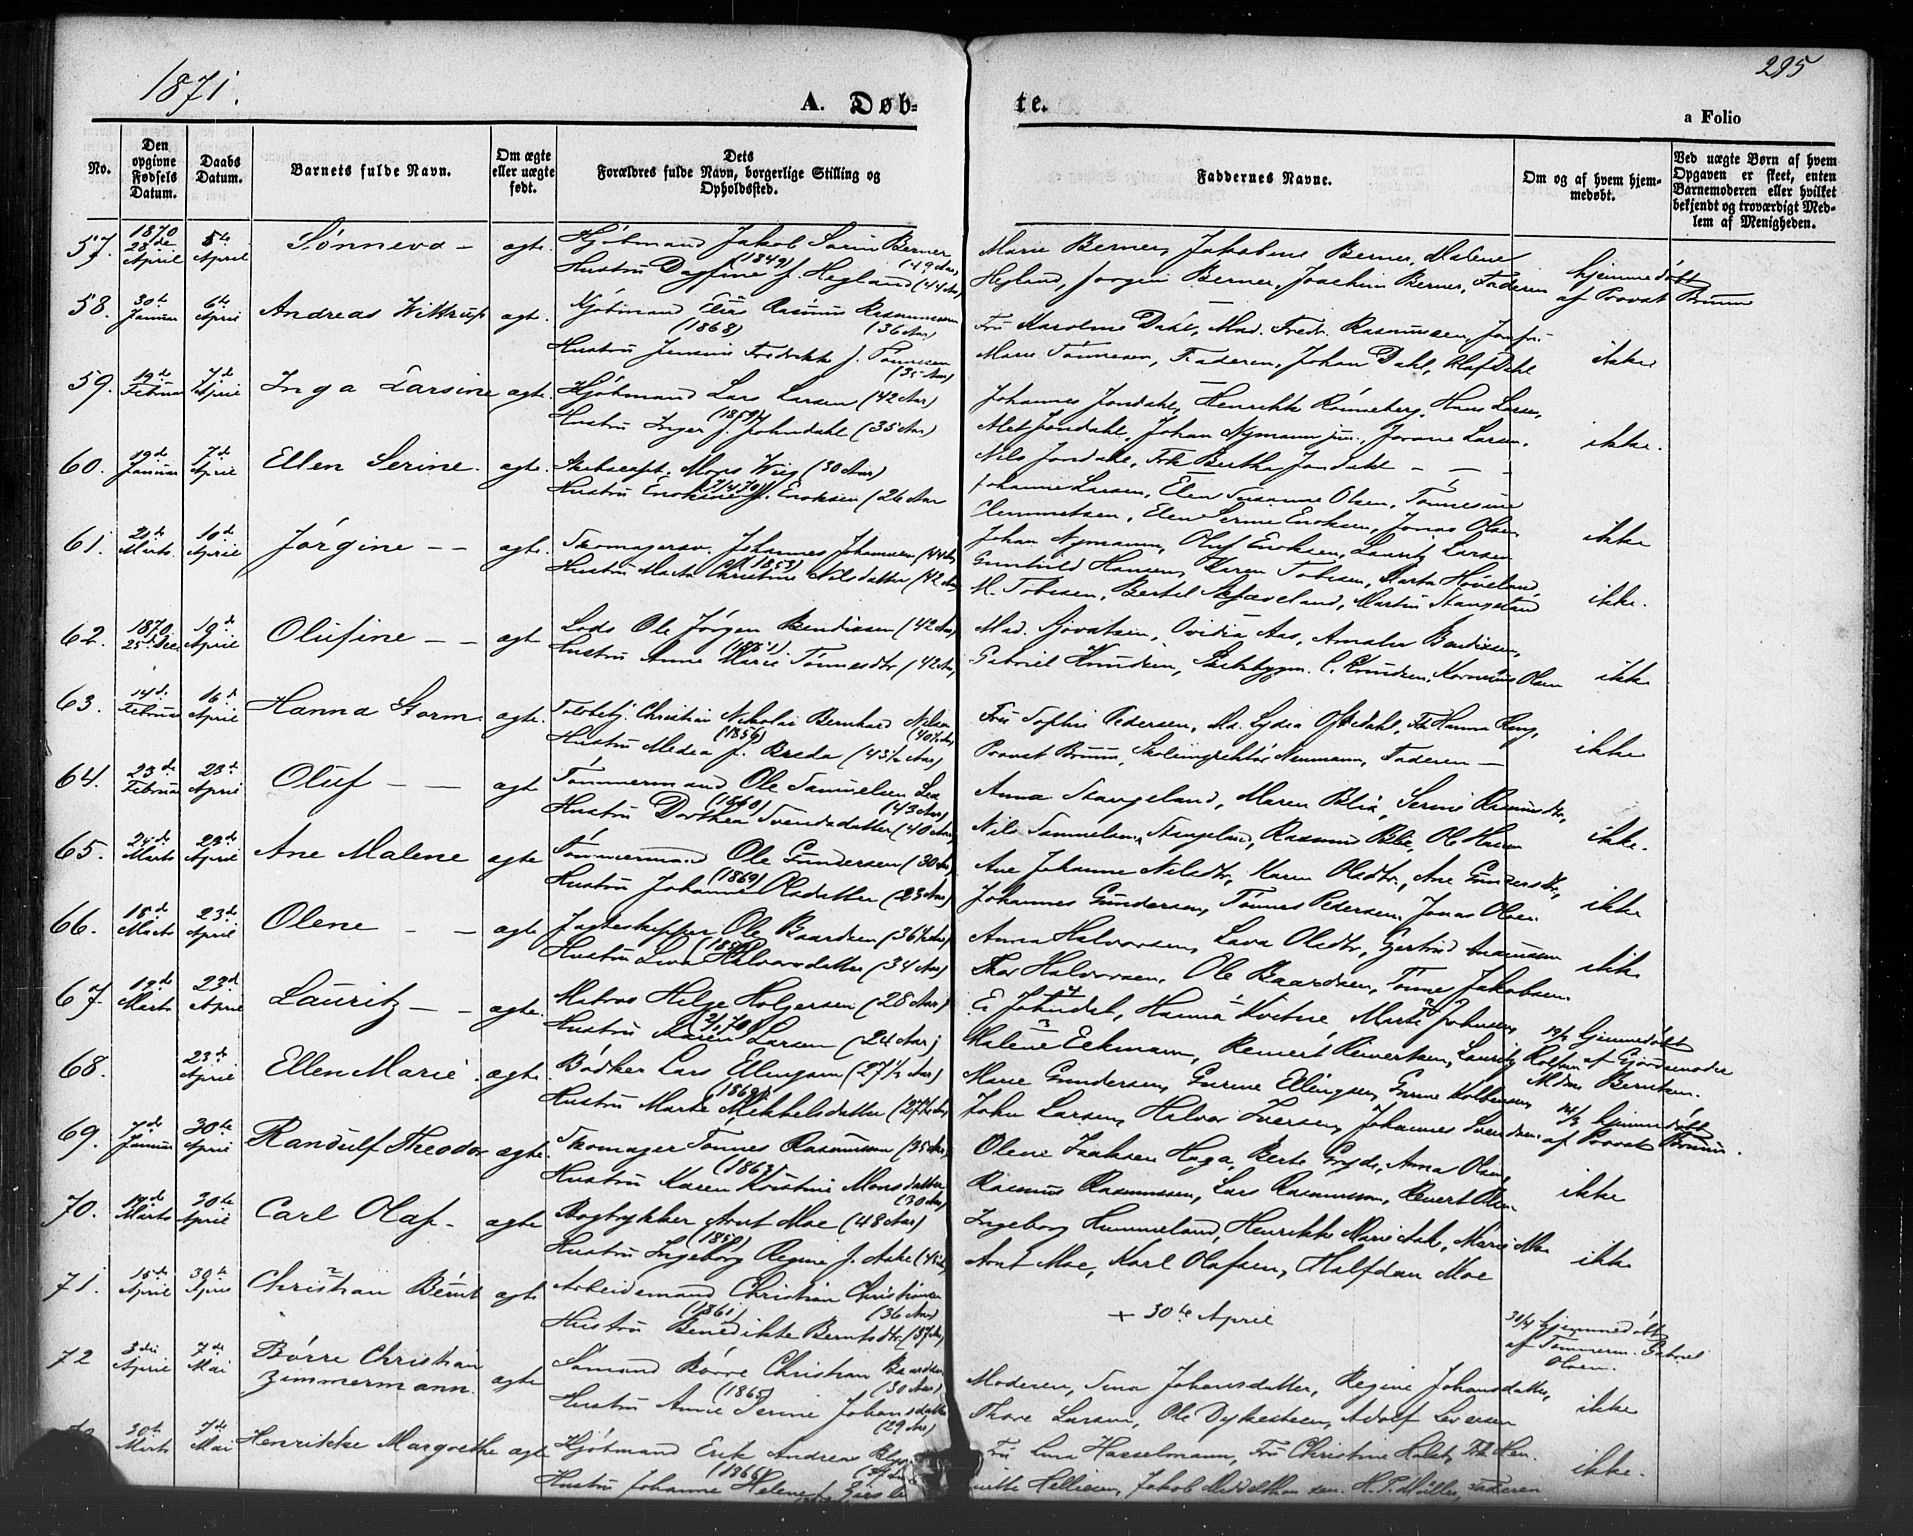 1871.
295
A. Døb-
te.
a Folio
No.
Den opgivne Fødsels Datum.
Daabs Datum.
Barnets fulde Navn.
Om ægte eller uægte født.
Dets Forældres fulde Navn, borgerlige Stilling og Opholdssted.
Faddernes Navne.
Om og af hvem hjemmedøbt.
Ved uægte Børn af hvem Opgaven er skeet, enten Barnemoderen eller hvilket bekjendt og troværdigt Medlem af Menigheden.
57. 1870 28de April 5te April Sønneva - ægte. Kjøbmand Jakob Sørin Berner (49 Aar)
(1849)
Hustru Dagfine f. Hegland (44 Aar)
Marie Berner, Jakobine Berner, Malene
Hegland, Jørgin Berner, Joachim Berner, Faderen
hjemmedøbt
af Provst Bruun
58. 30te Januar 6te April Andreas Wittrup ægte. Kjøbmand Elias Rasmus Rasmussen
(1868) (36 Aar)
Hustru Jensine Fredrikke f. Tønnesen
(35 Aar)
Fru Karoline Dahl, Mad. Fredr. Rasmussen, Jomfru
Marie Tønnesen, Faderen, Johan Dahl, Olaf Dahl
ikke
59. 19de Februar 7de April Inga Larsine ægte. Kjøbmand Lars Larsen (42 Aar)
(1859)
Hustru Inger f. Johndahl (35 Aar)
Johannes Jondahl, Henrikke Rønneberg, Hans Larsen,
Alet Jondahl, Johan Nymann jun., Jorane Larsen.
Nils Jondahl, Frk Bertha Jondahl - - -
ikke.
60. 19de Januar 7de April Ellen Serine. ægte. Skibscapt. Mons Wiig (30 Aar)
Hustru Enoksine f. Enoksen (26 Aar
Johanne Larsen, Elen Susanne Olsen, Tønnesine
Clemmetsen, Elen Serine Enoksen, Jonas Olsen
Johan Nymann, Oluf Enoksen, Lauritz Larsen
ikke
61. 21de Marts 10de April Jørgine - - ægte. Skomagersv. Johannes Johannesen
(1853)
Hustru Marta Christine Nilsdatter (42 Aar)
Gunhild Hansen, Karen Tobisen, Marta Høveland,
M. Tobisen, Bertel Skjæveland, Martin Stangeland
ikke.
62. 1870 25de Dec 10de April Olufine - - ægte Lods Ole Jørgen Bendixsen (42 Aar)
(1851)
Hustru Anne Marie Tønnesdtr. (42 Aar)
Mad. Sjovatsen, Ovidia Aas, Amalie Bendixsen,
Gabriel Knudsen, Skibsbygm. C. Knudsen, Kornelius Olsen
ikke
63. 14de Februar 16de April Hanna Storm. ægte. Toldbetj. Christian Nikolai Bernhard Nilsen
(1856) (40½ Aar)
Hustru Medea f. Breda (43½ Aar)
Fru Sophie Pedersen, Md. Lydia Oftedahl, Frk Hanna Berg,
Provst Bruun, Skoleinspektør Neumann, Faderen -
ikke
64. 23de Februar 23de April Oluf - - ægte Tømmermand Ole Samuelsen Lea
(1860) (43 Aar)
Hustru Dorthea Svendsdatter (40 Aar)
Anna Stangeland, Maren Blix, Serine Rasmusdtr,
Nils Samuelsen, Stangeland, Rasmus Blix, Ole Hansen
ikke.
65. 24de Marts 23de April Ane Malene ægte Tømmermand Ole Gundersen (30 Aar)
(1869)
Hustru Johanne Olsdatter (23 Aar)
Ane Johanne Nilsdtr, Karen Olsdtr., Ane Gundersdtr,
Johannes Gundersen, Tønnes Pedersen, Jonas Olsen
ikke
66. 15de Marts 23de April Olene - - ægte Jagteskipper Ole Baardsen (36½ Aar)
Hustru Lisa Halvorsdatter (34 Aar)
Anna Halvorsen, Lava Olsdtr, Gjertrud Ananussen
Thor Halvorsen, Ole Baardsen, Tønne Jakobsen.
ikke
67. 19de Marts 23de April Lauritz - - ægte. Matros Helge Holgersen (28 Aar)
Hustru Karen Larsen (24 Aar)
E. Johndal, Hanna Kvitne, Marte Johnsen
Malene Eekmann, Reinert Reinertsen, Lauritz Rolfsen
19/3 hjemmedøbt
af Gjordemoder
Md. Berntsen.
68. 23de April Ellen Marie. ægte. Bødker Lars Ellingsen (27½ Aar)
Hustru Marte Mikkelsdatter (27½ Aar)
Marie Gundersen, Gurine Ellingsen, Grane Kolbensen
John Larsen, Halvor Iversen, Johannes Svendsen
hjemmedøbt
af Provst Bruun.
69. 7de Januar 30te April Randulf Theodor ægte. Skomager Tønnes Rasmussen (35 Aar)
(1863)
Hustru Karen Kristine Monsdatter
(30 Aar)
Olene Isaksen Haga, Berte Gryde, Anna Olsen,
Rasmus Rasmussen, Lars Rasmussen, Revert Olsen
ikke
70. 17de Marts 30te April Carl Olaf - ægte Bogtrykker Arnt Moe (48 Aar)
Hustru Ingeborg Regine f. Aske
Ingeborg Hummeland, Henrikke Marie Ask, Marie Moe
Arnt Moe, Karl Olafsen, Halfdan Moe
ikke
71. 15de April 30te April Christian Bernt ægte Arbeidsmand Christian Christiansen
(1861) (36 Aar)
Hustru Benedikte Berntsdtr (37 Aar)
+ 30te April
30/4 hjemmedøbt
af Tømmerm. Gabriel
Olsen.
72 3die April 7de Mai Børre Christian
Zimmermann. ægte Sømand Børre Christian Baardsen
(1865) (30 Aar)
Hustru Anne Serine Johansdatter
(29 Aar)
Moderen, Tina Johansdatter, Regine Johansdatter,
Thore Larsen, Ole Dykesteen, Adolf Sevesen
ikke
30te Marts 7de Mai Henrikke Margrethe ægte Kjøbmand Erik Andreas
(1866)
Hustru Johanne Helene f.
Fru Lina Hasselmann, Fru Christine Holst, Frk Hen-
riette Helliesen, Jakob Middelthon sen. H. P. Müller, Faderen
ikke.